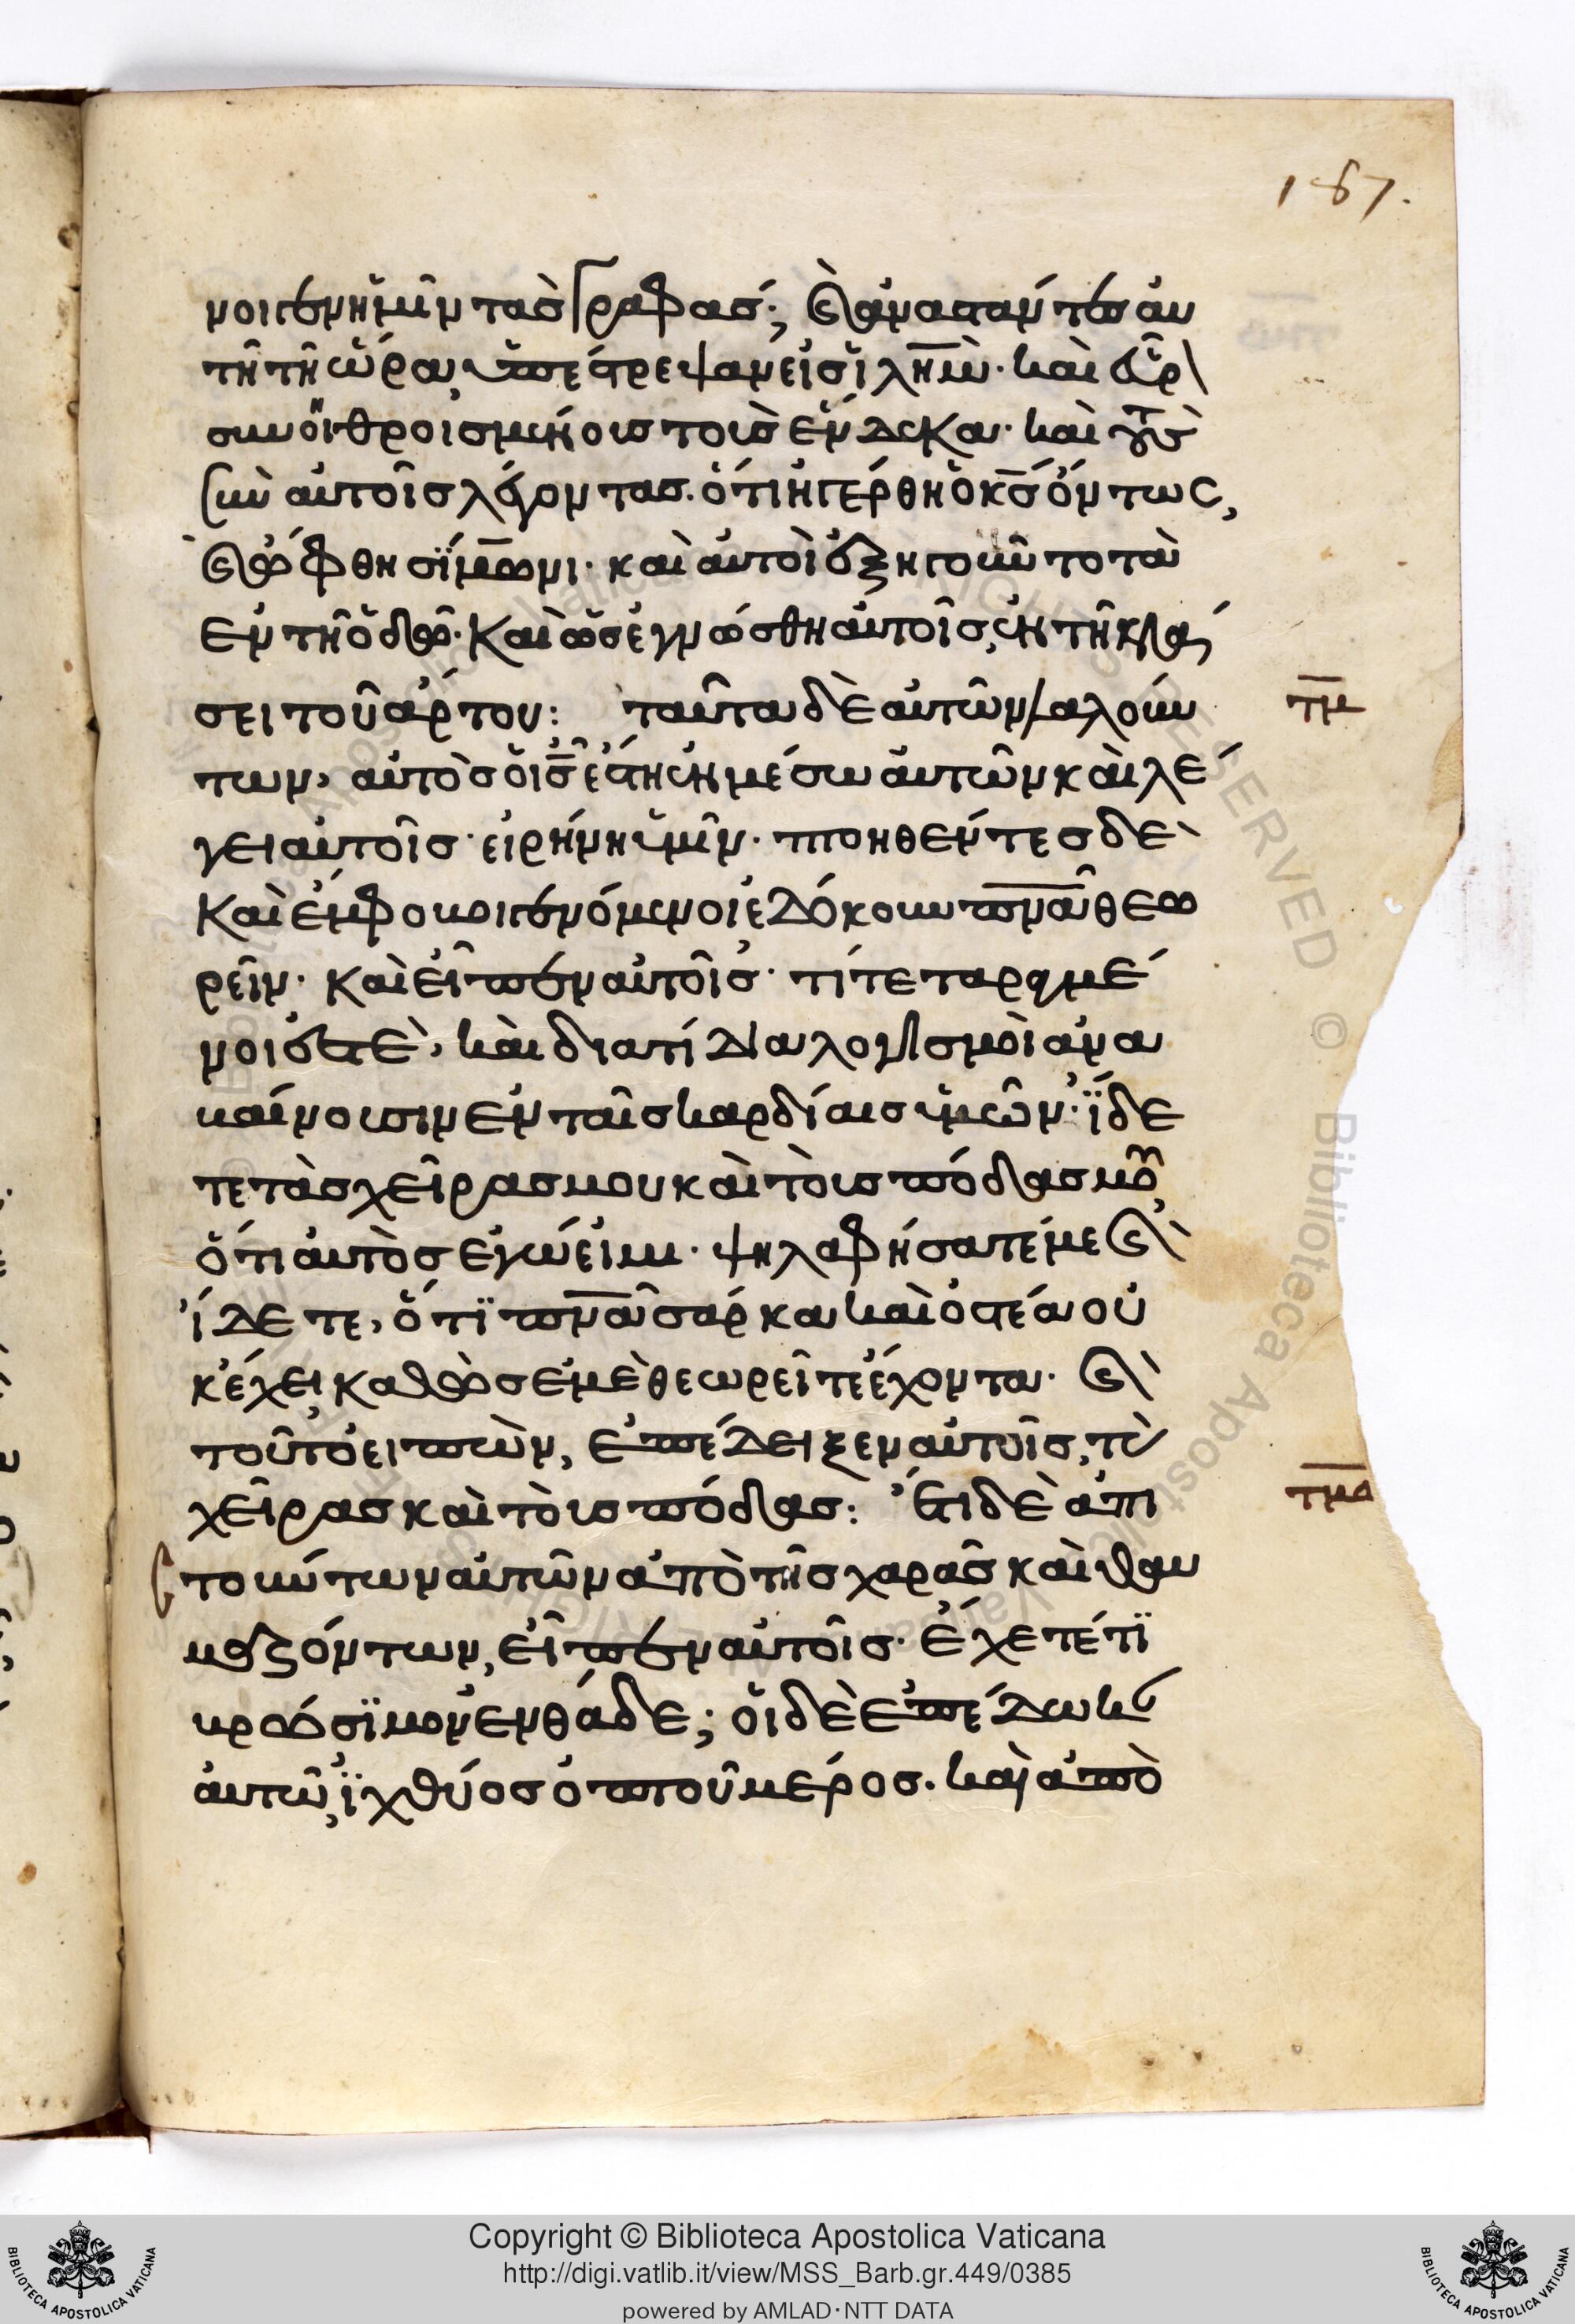 187.
νοιγεν ἡμῖν τὰς γραφάς; καὶ ἀναστάντες αὐ
τῆ τῆ ὥρα, ὑπέστρεψαν εἰς ἰλημ̅· καὶ εὗρ
συνηθροισμένους τοὺς ἕνδεκα· καὶ τοὺς
σὺν αὐτοῖς λέγοντας. ὅτι ἠγέρθη ὁ κ̅ς ὄντως,
καὶ ὤφθη σίμωνι· καὶ αὐτοὶ ἐξηγοῦντο τὰ
ἐν τῆ ὁδῶ· καὶ ὡς ἐγνώσθη αὐτοῖς, ἐν τῆ κλά
σει τοῦ ἄρτου: ταῦτα δὲ αὐτῶν λαλούν
των, αὐτὸς ὁ ι̅ς ἔστη ἐν μέσω αὐτῶν καὶ λέ
γει αὐτοῖς· εἰρήνη ὑμῖν· πτοηθέντες δὲ
καὶ ἔμφοβοι γενόμενοι ἐδόκουν πν̅α θεω
ρεῖν· καὶ εἶπεν αὐτοῖς· τί τεταραγμέ
νοι ἐστὲ, καὶ διατί διαλογισμοὶ ἀνα
βαίνουσιν ἐν ταῖς καρδίαις ὑμῶν· ἴδε
τε τὰς χεῖρας μου καὶ τοὺς πόδας μου,
ὅτι αὐτὸς ἐγώ εἰμι· ψηλαφήσατέ με καὶ
ἴδετε, ὅτι πν̅α σάρκα καὶ ὀστέα οὐ
κ ἔχει, καθὼς ἐμὲ θεωρεῖτε ἔχοντα· καὶ
τοῦτο εἰπὼν, ἐπέδειξεν αὐτοῖς, τὰς
χεῖρας καὶ τοὺς πόδας: ἔτι δὲ ἀπι
στούντων αὐτῶν ἀπὸ τῆς χαρᾶς καὶ θαυ
μαζόντων, εἶπεν αὐτοῖς· ἔχετέ τι
βρώσιμον ἐνθάδε; οἱ δὲ ἐπέδωκαν
αὐτῶ, ἰχθύος ὀπτοῦ μέρος. καὶ ἀπὸ
τ̅μ̅
τ̅μ̅α̅
Copyright © Biblioteca Apostolica Vaticana
http://digi.vatlib.it/view/MSS_Barb.gr.449/0385
powered by AMLAD·NTT DATA
BIBLIOTECA APOSTOLICA VATICANA
BIBLIOTECA APOSTOLICA VATICANA